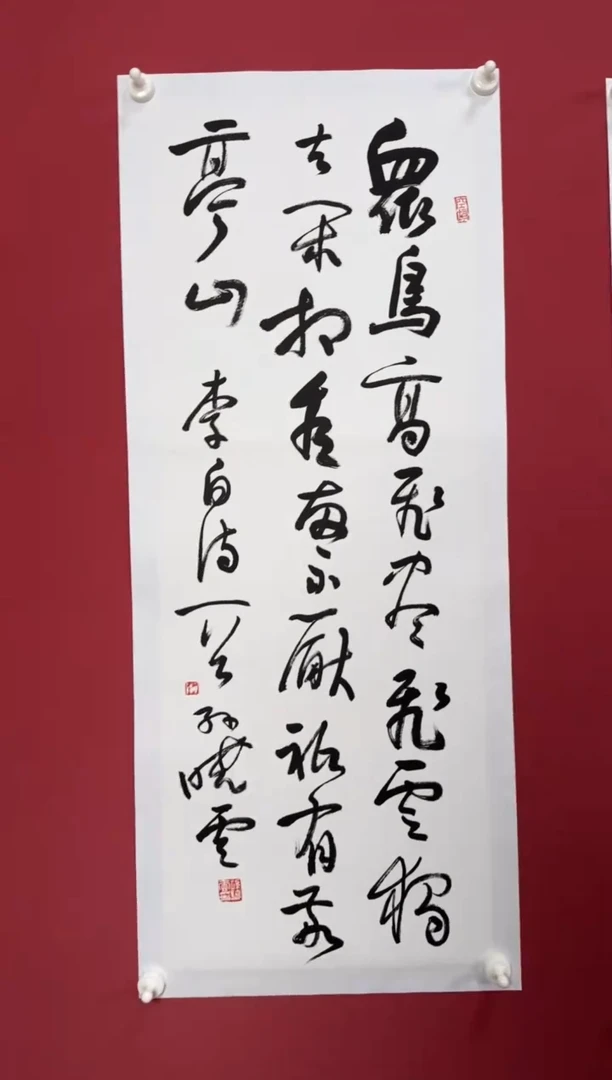 眾鳥高飛盡飛雲獨
去閑相看兩不厭祇有敬
亭山 李白詩一首 孫曉雲